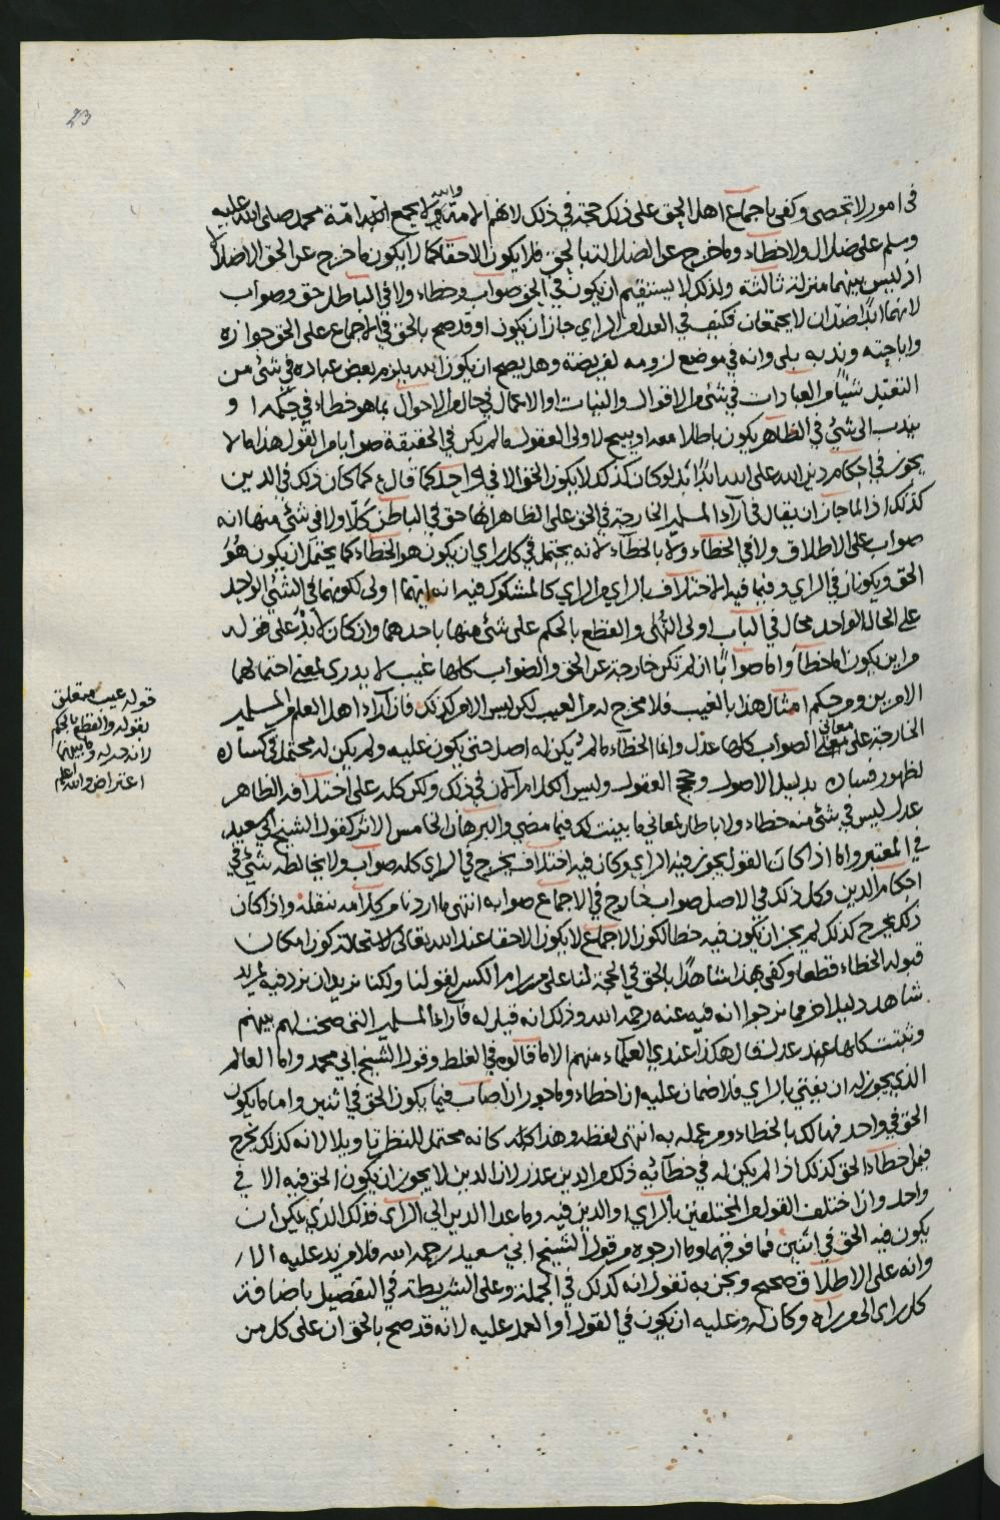 23
في امور لا تحصى وكفى باجماع اهل الحق على ذلك حجة في ذلك لانهم الامة والله لا يجمع الله امة محمد صلى الله عليه
وسلم على ضلال ولا خطاء وما خرج عن الضلال الى الحق فلا يكون الا حقا كما لا يكون ما خرج عن الحق الا ضلالا
اذ ليس بينهما منزلة ثالثة ولذلك لا يستقيم ان يكون في الحق صواب وخطاء ولا في الباطل حق وصواب
لانهما ابدا ضدان لا يجتمعان فكيف في العدل من الراي جاز ان يكون او قد صح بالحق في الاجماع على الحق جوازه
واباحته وندبه بلى وانه في موضع لزومه لفريضة وهل يصح ان يكون الله يلزم بعض عباده في شئ من
التقيد شيأ من العبادات في شئ من الاقوال والنيات او الاعمال في حال من الاحوال بما هو خطاء في حكمه او
يندب الى شئ في الظاهر يكون باطلا معه او يبيح لاولى العقول ما لم يكن في الحقيقة صوابا من القول هذا ما لا
يجوز في احكام دين الله على الله ابدا ابدا لو كان كذلك لا يكون الحق الا في واحد كما قال ع كما كان ذلك في الدين
كذلك اذا لما جاز ان يقال في آراء المسلمين الخارجة في الحق على الظاهر انها حق في الباطن كلا ولا في شئ منها انه
صواب على الاطلاق ولا في الخطاء ولا بالخطاء لانه يحتمل في كل راي ان يكون هو الخطاء كما يحتمل ان يكون هو
الحق ويكونان في الراي وفيما فيه الاختلاف بالراي من الراي كالمشكوك فيه انه ايهما اولى لكونهما في الشئ الواحد
على الحال الواحد محال في الباب اولى النهى والقطع بالحكم على شئ منها باحدهما وان كان لا بد على قوله
من اين يكون اما خطأ واما صوابا ان لم تكن خارجة عن الحق والصواب كلها غيب لا يدرى لمعنى احتمالها
الامرين ومن حكم امثال هذا بالغيب فلا مخرج له من العيب لكن ليس الامر كذلك فان آراء اهل العلم من المسلمين
الخارجة على معاني الصواب كلها عدل وانما الخطاء ما لم يكن له اصل حتى يكون عليه ولم يكن له محتمل في فساده
لظهور فساده بدليل الاصول وحجج العقول وليس الكلام الان في ذلك ولكن كله على اختلافه الظاهر
عدل ليس في شئ منه خطاء ولا باطل لمعاني ما بينت لك فيما مضى والبرهان الخامس الاثر كقول الشيخ ابي سعيد
في المعتبر واما اذا كان القول يجوز فيه الراي وكان فيه اختلاف يخرج في الراي كله صواب ولا يخالطه شئ في
احكام الدين وكل ذلك في الاصل صواب خارج في الاجماع صوابه انتهى ما اردنا من كلامه بنقله واذا كان
ذلك يخرج كذلك لم يجز ان يكون فيه خطا لكون الاجماع لا يكون الا حقا عند الله تعالى لاستحالة كون امكان
قبوله الخطاء قطعا وكفى بهذا شاهدا بالحق في الحجة لنا على من رام الكسر لقولنا ولكنا نريد ان نزد فيه لمريد
شاهد دليلا اخر مما نرجوا انه فيه عنه رحمه الله وذلك انه قيل له فآراء المسلمين التى صحت لهم بينهم
وثبتت كلها عند عدل فقال هكذا عندي العلماء منهم الا ما قالوه في الغلط وقول الشيخ ابي محمد واما العالم
الذي يجوز له ان يفتي بالراي فلا ضمان عليه ان اخطاء وماجور ان اصاب فيما يكون الحق في اثنين واما ما يكون
الحق في واحد فهالك بالخطاء ومن عمله به انتهى لفظه وهذا كله كانه محتمل للنظر تاويلا لانه كذلك يخرج
فيمن اخطاء الحق كذلك اذا لم يكن له في خطائه ذلك من الدين عذر لان الدين لا يجوز ان يكون الحق فيه الا في
واحد وان اختلف القول من المختلفين بالراي او الدين فيه وما عدا الدين الى الراى فذلك الذي يمكن ان
يكون فيه الحق في اثنين فما فوقهما وما ارجوه من قول الشيخ ابي سعيد رحمه الله فلا مزيد عليه الا
وانه على الاطلاق صحيح ونحن به نقول انه كذلك في الجملة وعلى الشريطة في التفصيل باضافة
كل راى الى من راه وكان له وعليه ان يكون في القول او العمل عليه لانه قد صح بالحق ان على كل من
قوله غيب متعلق
بقوله والقطع بالحكم
لانه خبر له وما بينهما
اعتراض والله اعلم